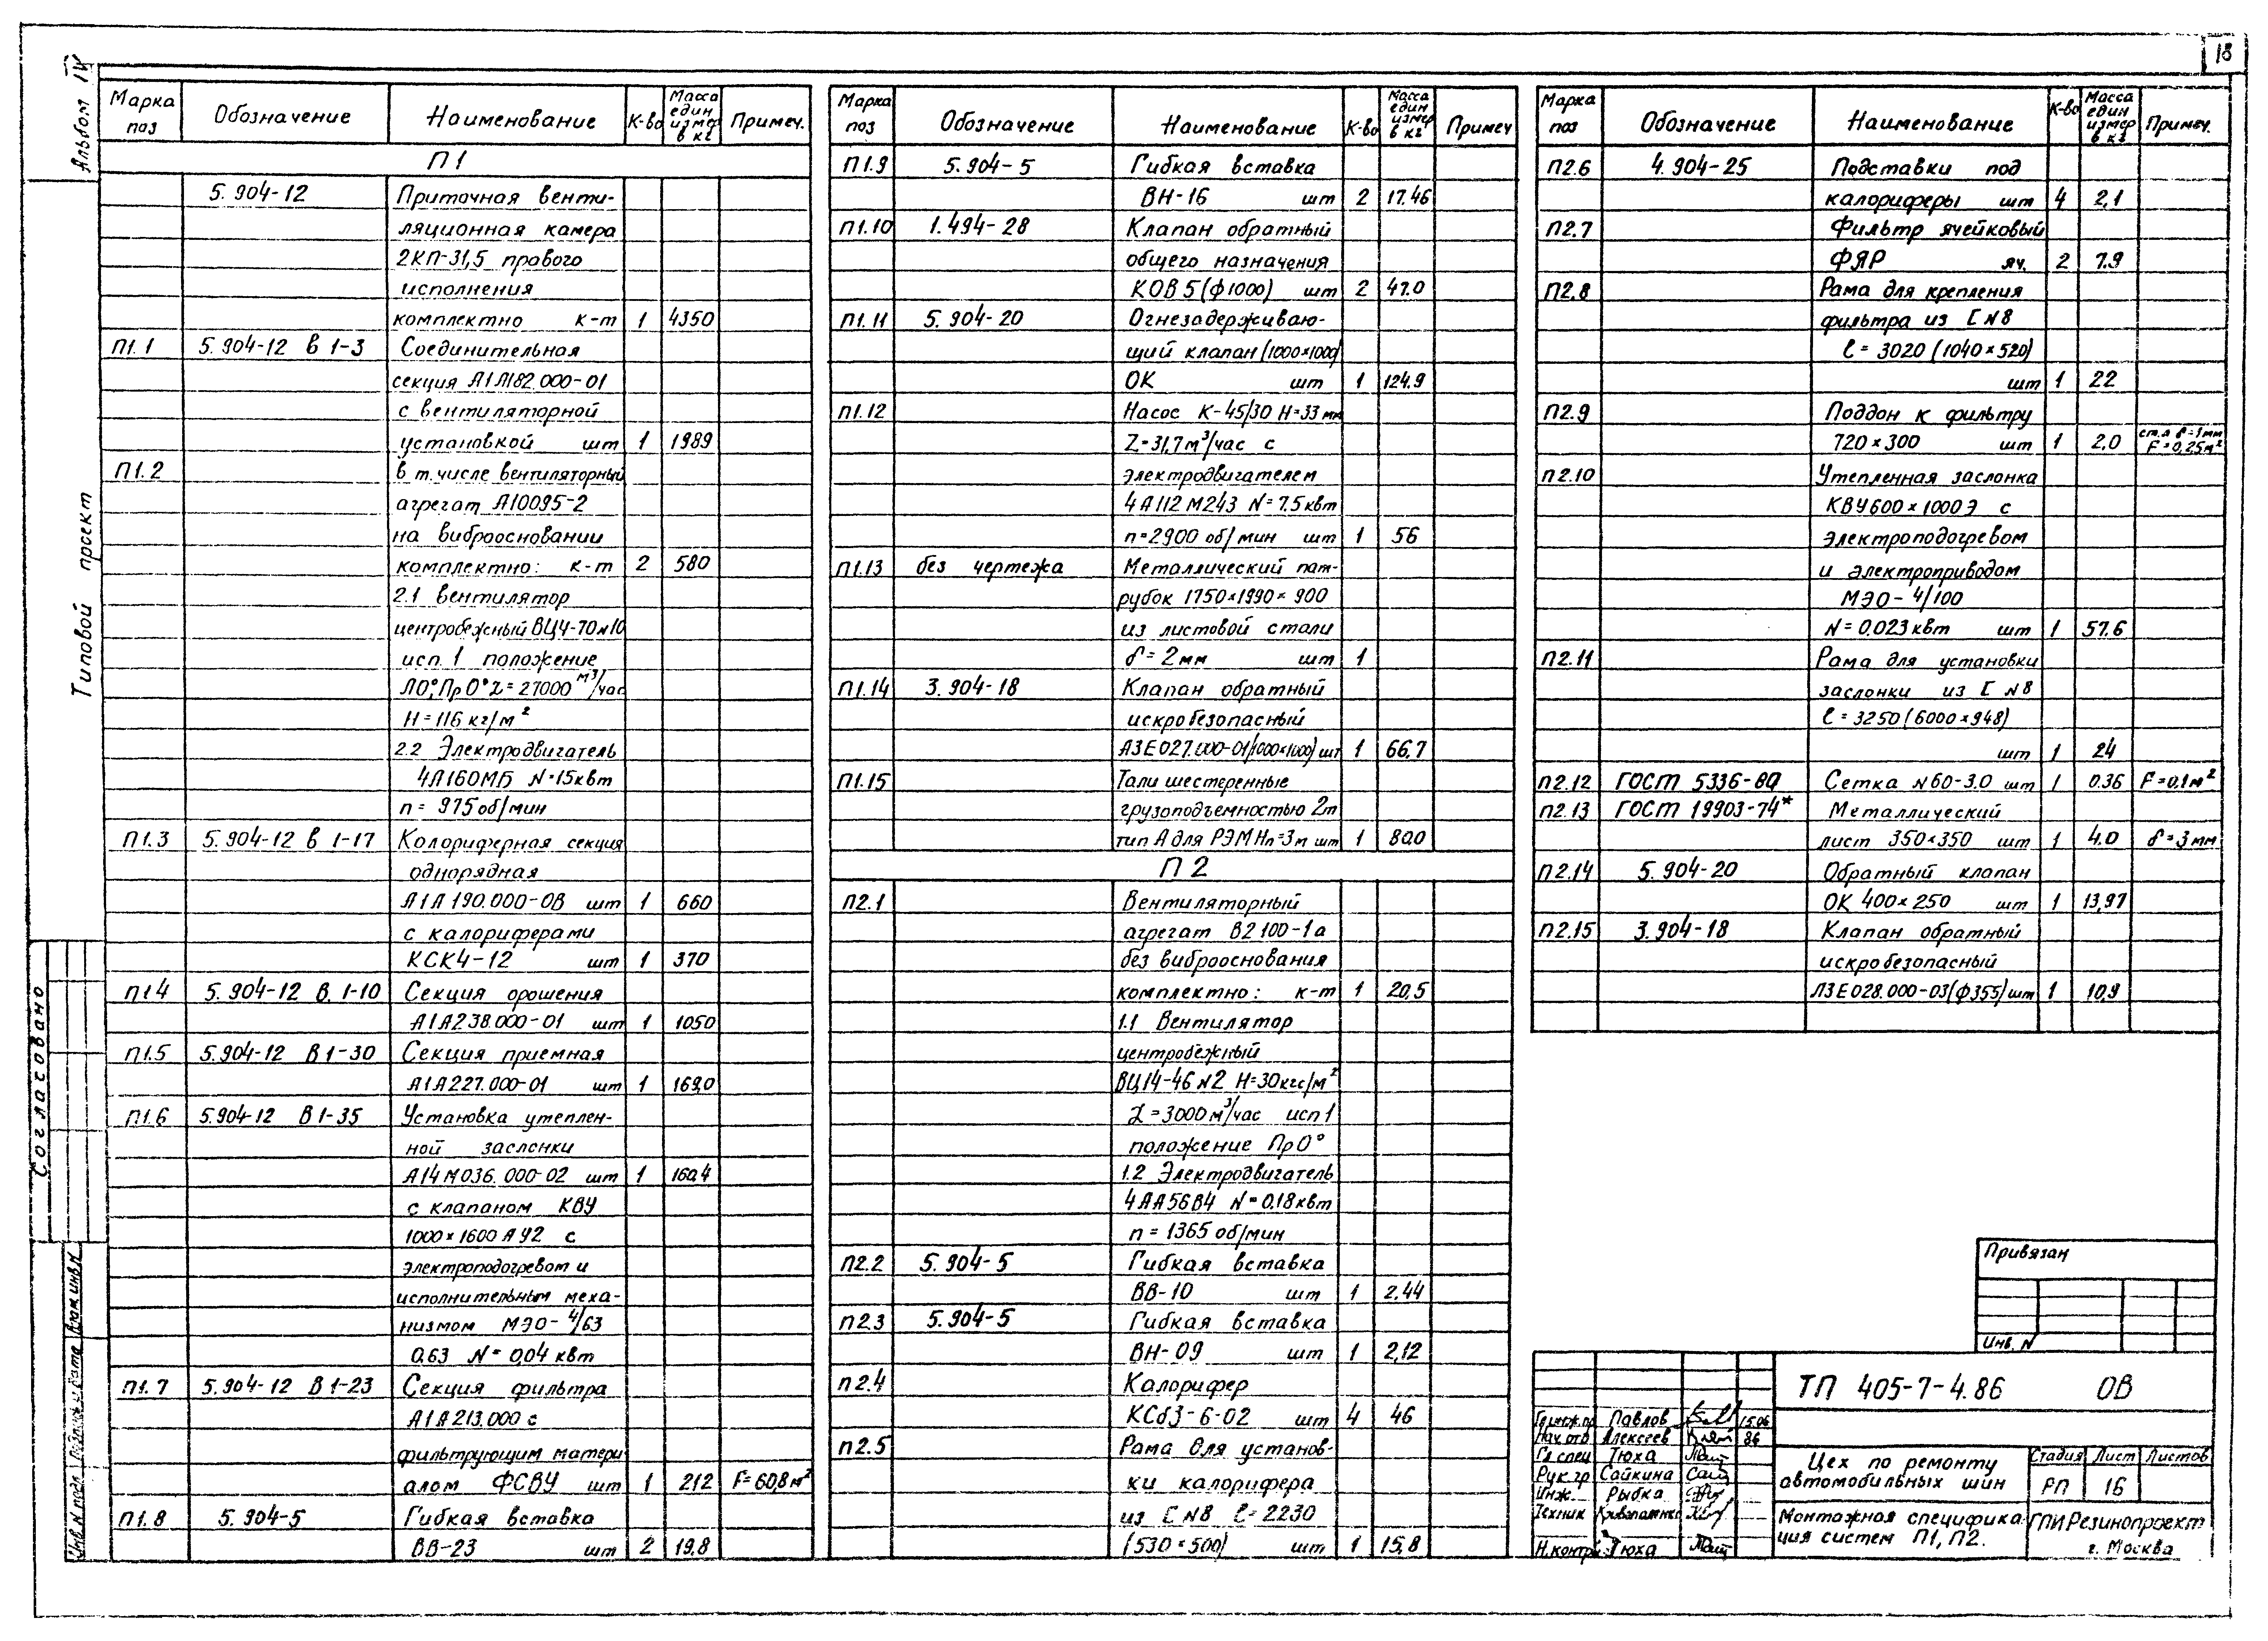 18
Альбом IV
Типовой проект
Согласовано
Инв. N подл. Подпись и дата Взам инв N
Марка поз Обозначение Наименование К-во Масса един измер в кг Примеч.
П1
5.904-12 Приточная венти-
ляционная камера
2КП-31,5 правого
исполнения
комплектно к-т 1 4350
П1.1 5.904-12 в 1-3 Соединительная
секция А1А182.000-01
с вентиляторной
установкой шт 1 1989
П1.2 в т. числе вентиляторный
агрегат А10095-2
на виброосновании
комплектно: к-т 2 580
2.1 вентилятор
центробежный ВЦ4-70 N10
исп. 1 положение
ЛО°; ПрО° L=27000 м³/час
H=116 кг/м²
2.2 Электродвигатель
4А160МБ N=15квт
n= 975 об/мин
П1.3 5.904-12 в 1-17 Колориферная секция
однорядная
А1А190.000-0В шт 1 660
с калориферами
КСК4-12 шт 1 370
П1.4 5.904-12 В. 1-10 Секция орошения
А1А238.000-01 шт 1 1050
П1.5 5.904-12 В 1-30 Секция приемная
А1А227.000-01 шт 1 169,0
П1.6 5.904-12 В 1-35 Установка утеплен-
ной заслонки
А14М036.000-02 шт 1 160.4
с клапаном КВУ
1000×1600 А У2 с
электроподогревом и
исполнительным меха-
низмом МЭО-4/63
0.63 N=0,04 квт
П1.7 5.904-12 В 1-23 Секция фильтра
А1А213.000 с
фильтрующим матери
алом ФСВУ шт 1 212 F=60,8 м²
П1.8 5.904-5 Гибкая вставка
ВВ-23 шт 2 19,8
Марка поз Обозначение Наименование К-во Масса един измер в кг Примеч
П1.9 5.904-5 Гибкая вставка
ВН-16 шт 2 17.46
П1.10 1.494-28 Клапан обратный
общего назначения
КОВ 5 (ф1000) шт 2 47.0
П1.11 5.904-20 Огнезадерживаю-
щий клапан (1000×1000)
ОК шт 1 124.9
П1.12 Насос К-45/30 H=33 мм
L=31,7 м³/час с
электродвигателем
4А112М243 N=7.5 квт
n=2900 об/мин шт 1 56
П1.13 без чертежа Металлический пат-
рубок 1750×1990×900
из листовой стали
δ=2мм шт 1
П1.14 3.904-18 Клапан обратный
искробезопасный
АЗЕ027.000-01(1000×1000) шт 1 66,7
П1.15 Тали шестеренные
грузоподъемностью 2т
тип А для РЭМ Нп=3м шт 1 80.0
П2
П2.1 Вентиляторный
агрегат В2100-1а
без виброоснования
комплектно: к-т 1 20,5
1.1 Вентилятор
центробежный
ВЦ14-46 N2 H=30кгс/м²
L=3000 м³/час исп 1
положение ПрО°
1.2 Электродвигатель
4АА56В4 N=0.18 квт
n=1365 об/мин
П2.2 5.904-5 Гибкая вставка
ВВ-10 шт 1 2,44
П2.3 5.904-5 Гибкая вставка
ВН-09 шт 1 2,12
П2.4 Калорифер
КСб3-6-02 шт 4 46
П2.5 Рама для установ-
ки калорифера
из [ N8 ℓ=2230
(530×500) шт 1 15,8
Марка поз Обозначение Наименование К-во Масса един измер в кг Примеч.
П2.6 4.904-25 Подставки под
калориферы шт 4 2,1
П2.7 Фильтр ячейковый
ФЯР яч. 2 7.9
П2.8 Рама для крепления
фильтра из [ N8
ℓ=3020 (1040×520)
шт 1 22
П2.9 Поддон к фильтру
720×300 шт 1 2,0 ст.л δ=1мм F=0,25м²
П2.10 Утепленная заслонка
КВУ600×1000Э с
электроподогревом
и электроприводом
МЭО-4/100
N=0.023 квт шт 1 57.6
П2.11 Рама для установки
заслонки из [ N8
ℓ=3250 (6000×948)
шт 1 24
П2.12 ГОСТ 5336-80 Сетка N60-3.0 шт 1 0.36 F=0,1м²
П2.13 ГОСТ 19903-74* Металлический
лист 350×350 шт 1 4.0 δ=3мм
П2.14 5.904-20 Обратный клапан
ОК 400×250 шт 1 13,97
П2.15 3.904-18 Клапан обратный
искробезопасный
ЛЗЕ028.000-03(ф355) шт 1 10,9
Привязан
Инв. N
ТП 405-7-4.86 ОВ
Гл.инж.пр Павлов 15.06
Нач.отд Алексеев 86
Гл спец Тюха
Рук.гр Сайкина
Инж. Рыбка
Техник
Н.контр. Тюха
Цех по ремонту
автомобильных шин
Стадия Лист Листов
РП 16
Монтажная специфика
ция систем П1, П2.
ГПИ Резинопроект
г. Москва